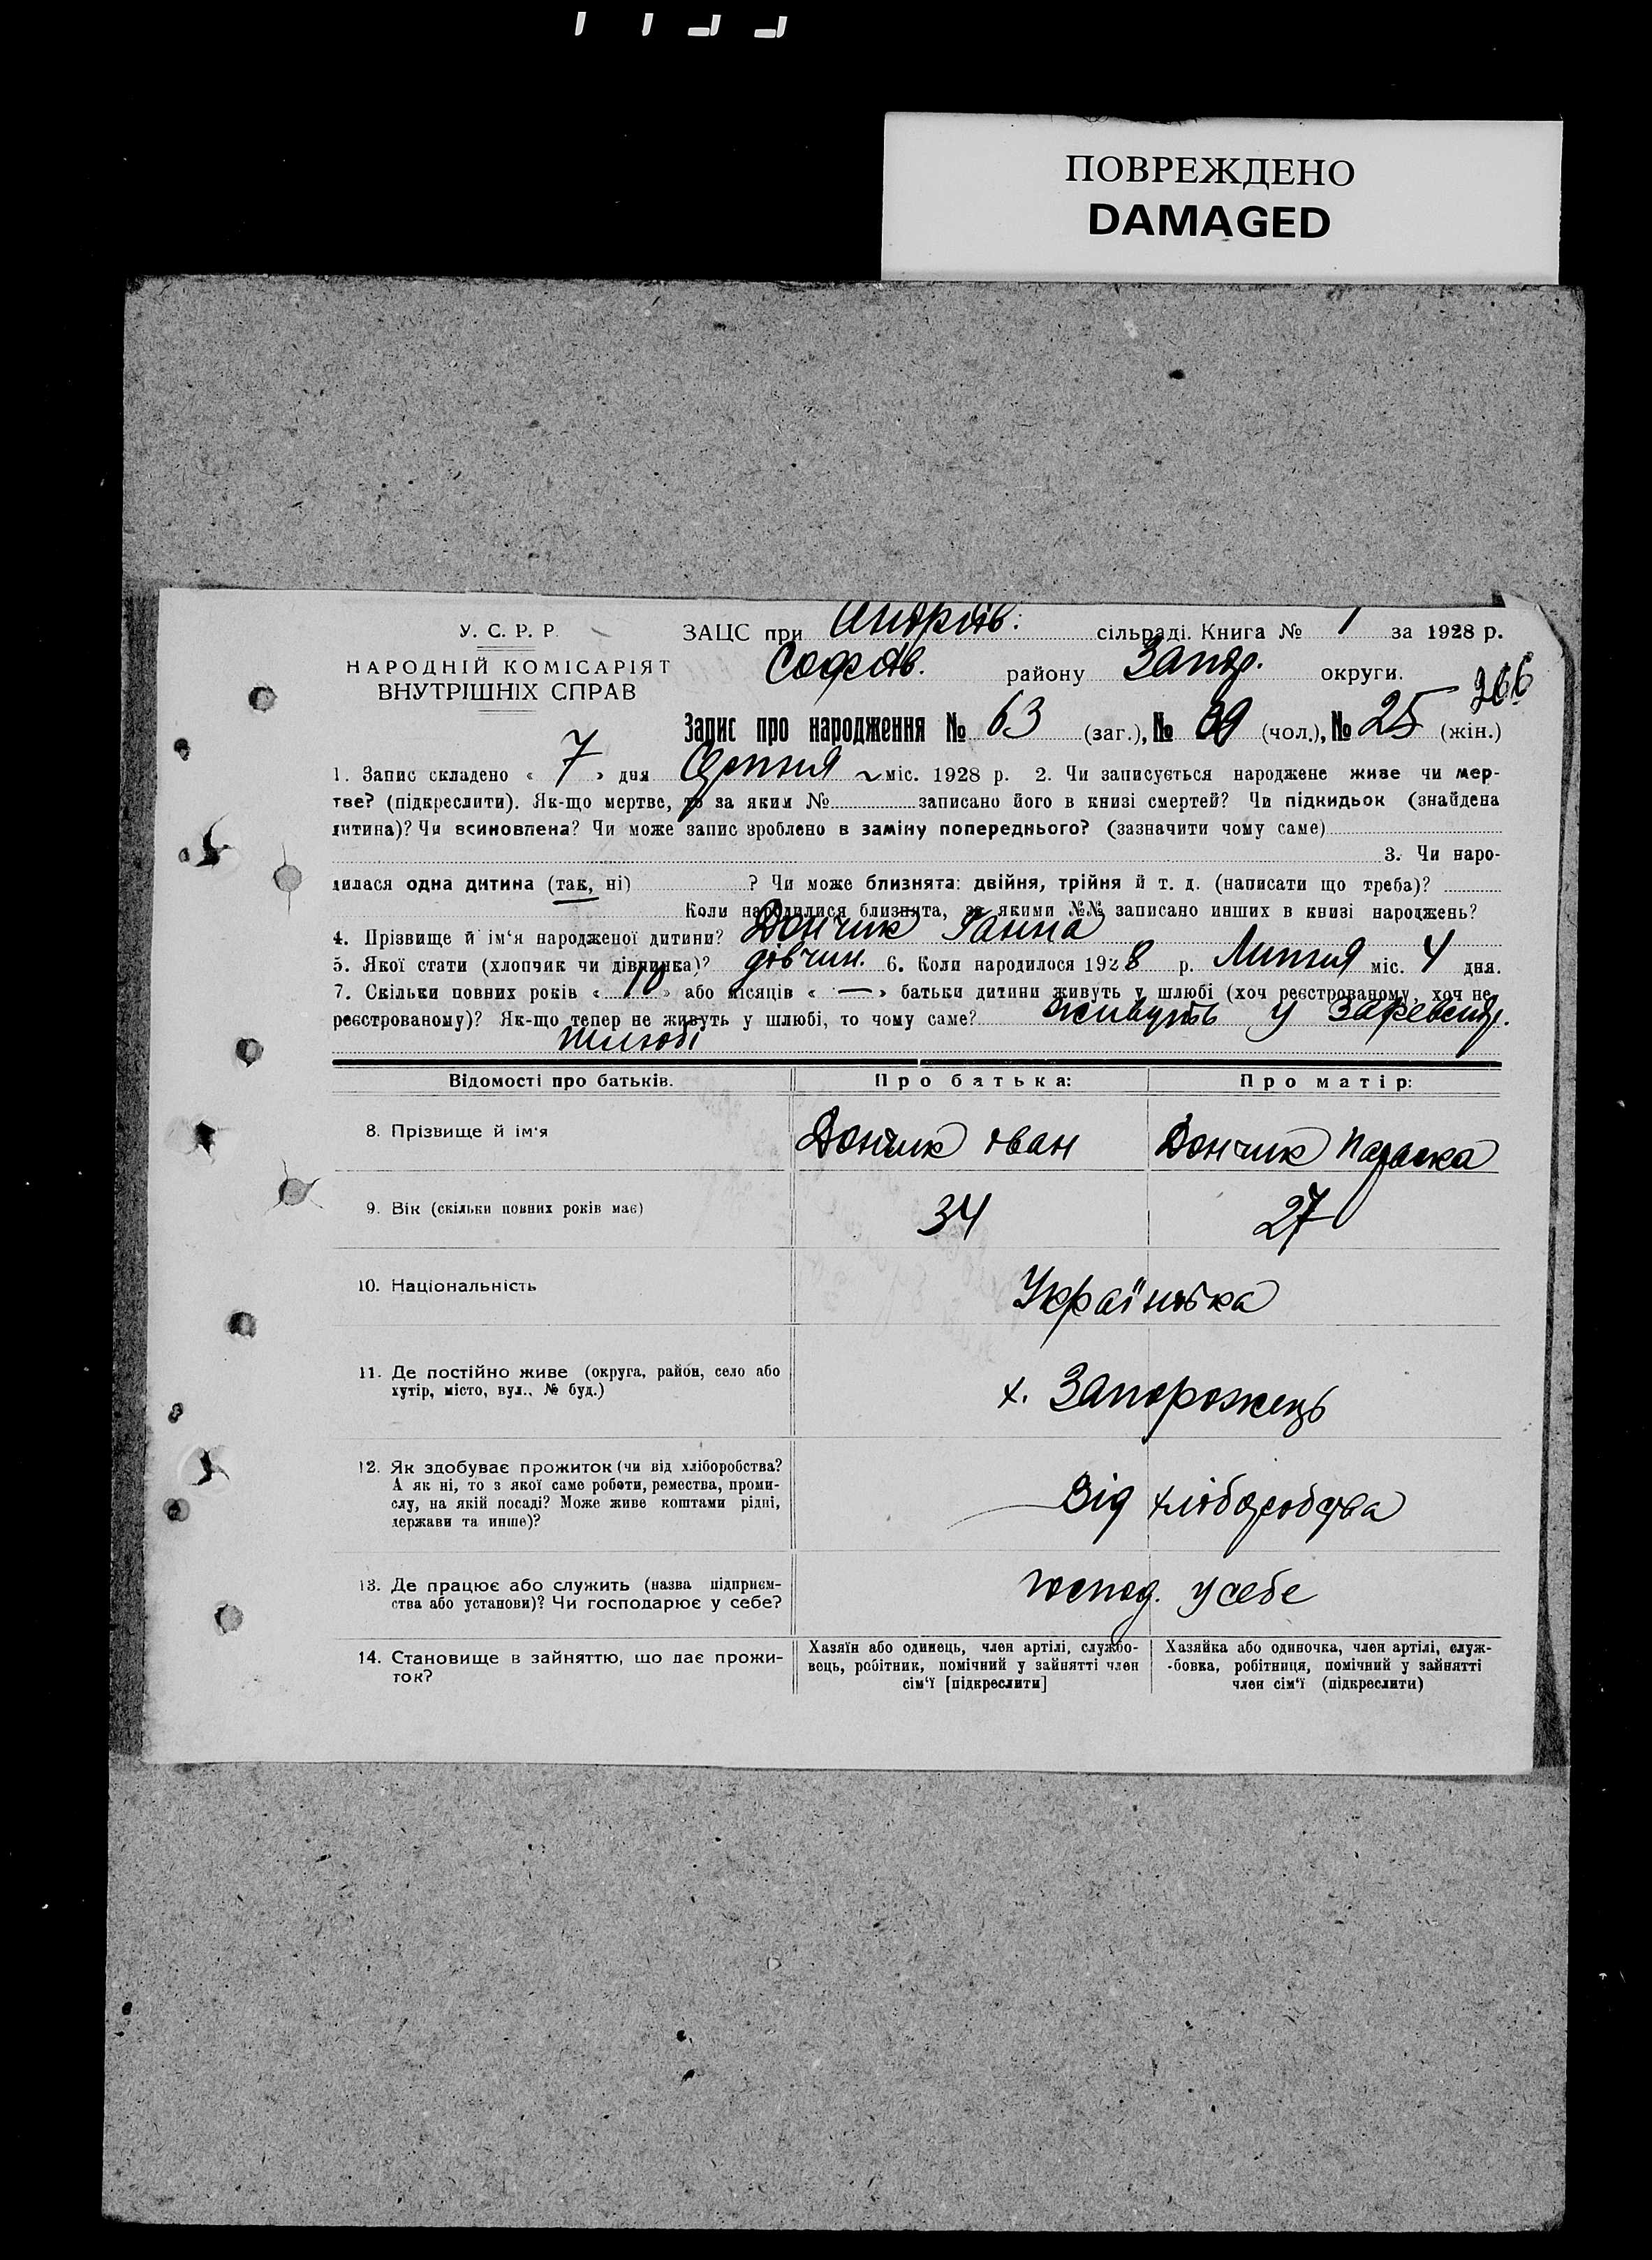 ПОВРЕЖДЕНО
DAMAGED
У. С. Р. Р.
НАРОДНІЙ КОМІСАРІЯТ
ВНУТРІШНІХ СПРАВ
ЗАЦС при Андріів. сільраді. Книга № 1 за 1928 р.
Софіїв. району Запор. округи.
266
Запис про народження № 63 (заг.), № (чол.), № 25 (жін.)
1. Запис складено « 7 » дня Серпня міс. 1928 р. 2. Чи записується народжене живе чи мер-
тве? (підкреслити). Як-що мертве, то за яким № записано його в книзі смертей? Чи підкидьок (знайдена
дитина)? Чи всиновлена? Чи може запис зроблено в заміну попереднього? (зазначити чому саме)
3. Чи наро-
дилася одна дитина (так, ні) ? Чи може близнята: двійня, трійня й т. д. (написати що треба)?
Коли народилися близнята, за якими №№ записано инших в книзі народжень?
4. Прізвище й ім‘я народженої дитини? Дончик Ганна
5. Якої стати (хлопчик чи дівчинка)? дівчин. 6. Коли народилося 1928 р. Липня міс. 4 дня.
7. Скільки повних років « 10 » або місяців « — » батьки дитини живуть у шлюбі (хоч реєстрованому, хоч не
реєстрованому)? Як-що тепер не живуть у шлюбі, то чому саме? живуть у
шлюбі
Відомості про батьків. Про батька: Про матір:
8. Прізвище й ім‘я Дончик Іван Дончик Параска
9. Вік (скільки повних років має) 34 27
10. Національність Українська
11. Де постійно живе (округа, район, село або
хутір, місто, вул., № буд.)
х. Запорожець
12. Як здобуває прожиток (чи від хліборобства?
А як ні, то з якої саме роботи, ремества, проми-
слу, на якій посаді? Може живе коштами рідні,
держави та инше)?
Від хліборобства
13. Де працює або служить (назва підприєм-
ства або установи)? Чи господарює у себе?
господ. у себе
14. Становище в зайняттю, що дає прожи-
ток?
Хазяїн або одинець, член артілі, службо-
вець, робітник, помічний у зайнятті член
сім‘ї [підкреслити]
Хазяйка або одиночка, член артілі, служ-
-бовка, робітниця, помічний у зайнятті
член сім‘ї (підкреслити)